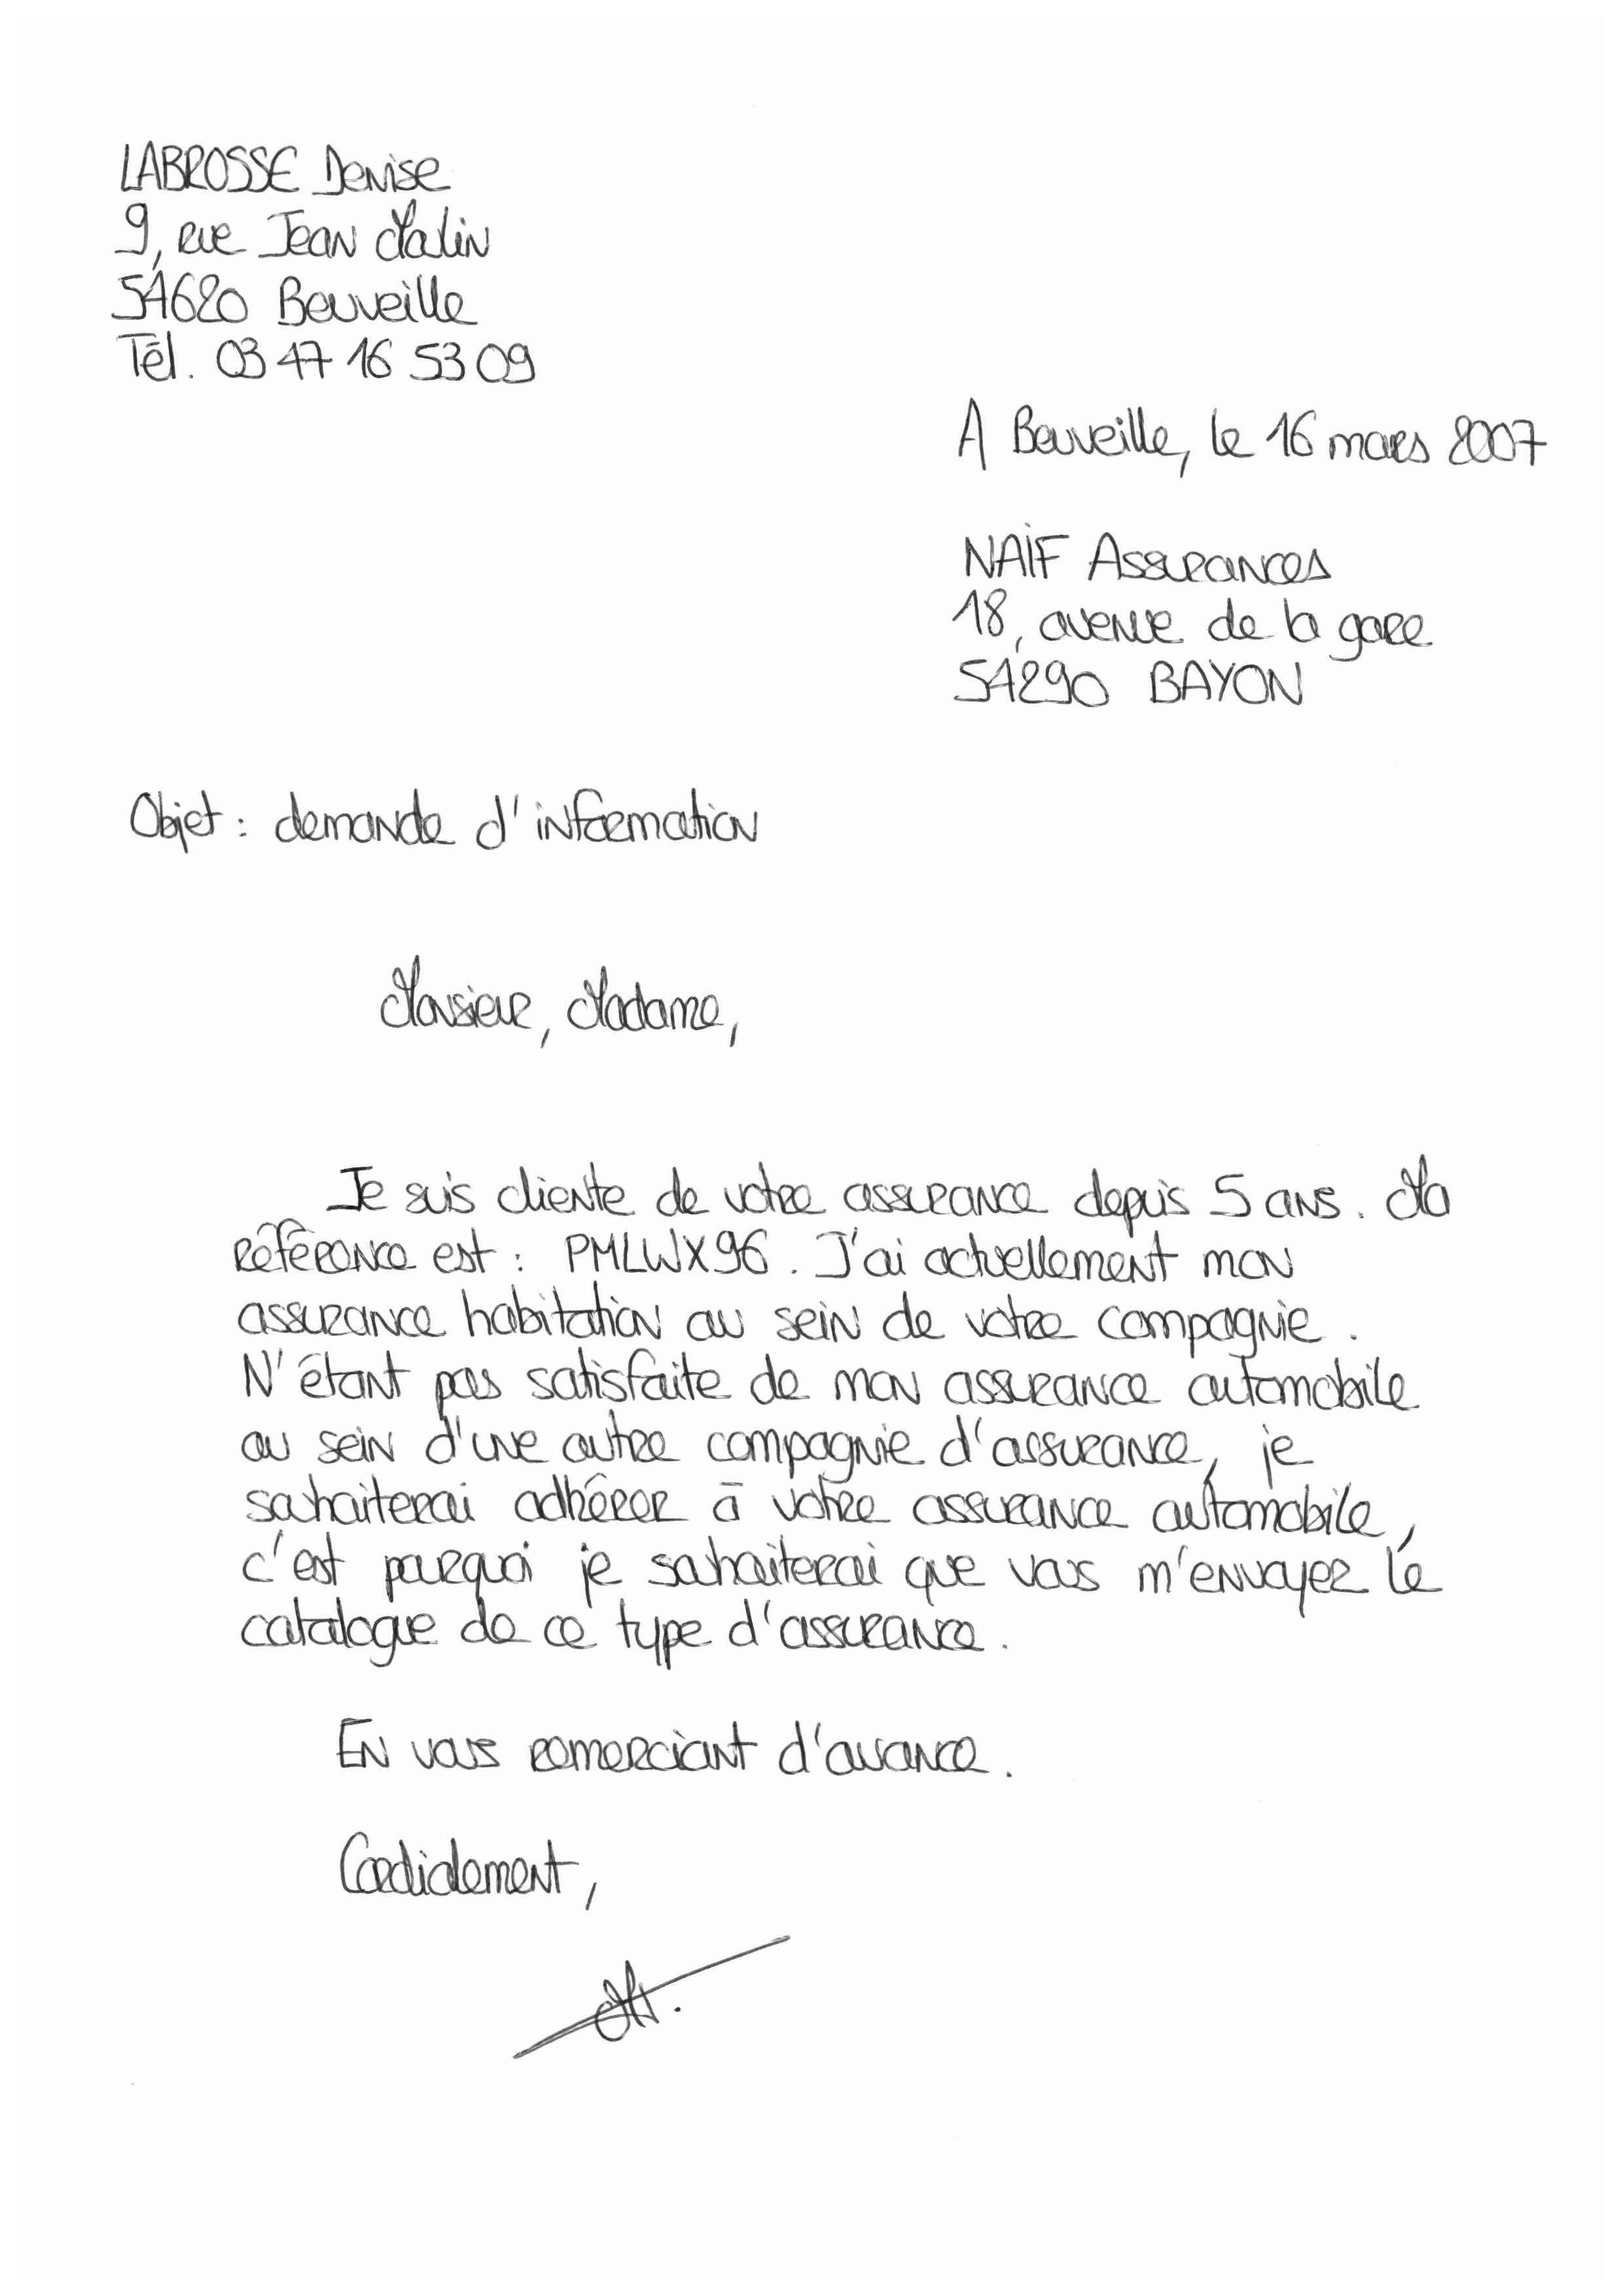 LABROSSE Denise
9, rue Jean Malin
54620 Beuveille
Tél. 03 47 16 53 09
A Beuveille, le 16 mars 2007
NAIF Assurances
18, avenue de la gare
54290 BAYON
Objet : demande d'information
Monsieur, Madame,
Je suis cliente de votre assurance depuis 5 ans. Ma
référence est : PMLWX96. J'ai actuellement mon
assurance habitation au sein de votre compagnie.
N'étant pas satisfaite de mon assurance automobile
au sein d'une autre compagnie d'assurance, je
souhaiterai adhérer à votre assurance automobile,
c'est pourquoi je souhaiterai que vous m'envoyez le
catalogue de ce type d'assurance.
En vous remerciant d'avance.
Cordialement,